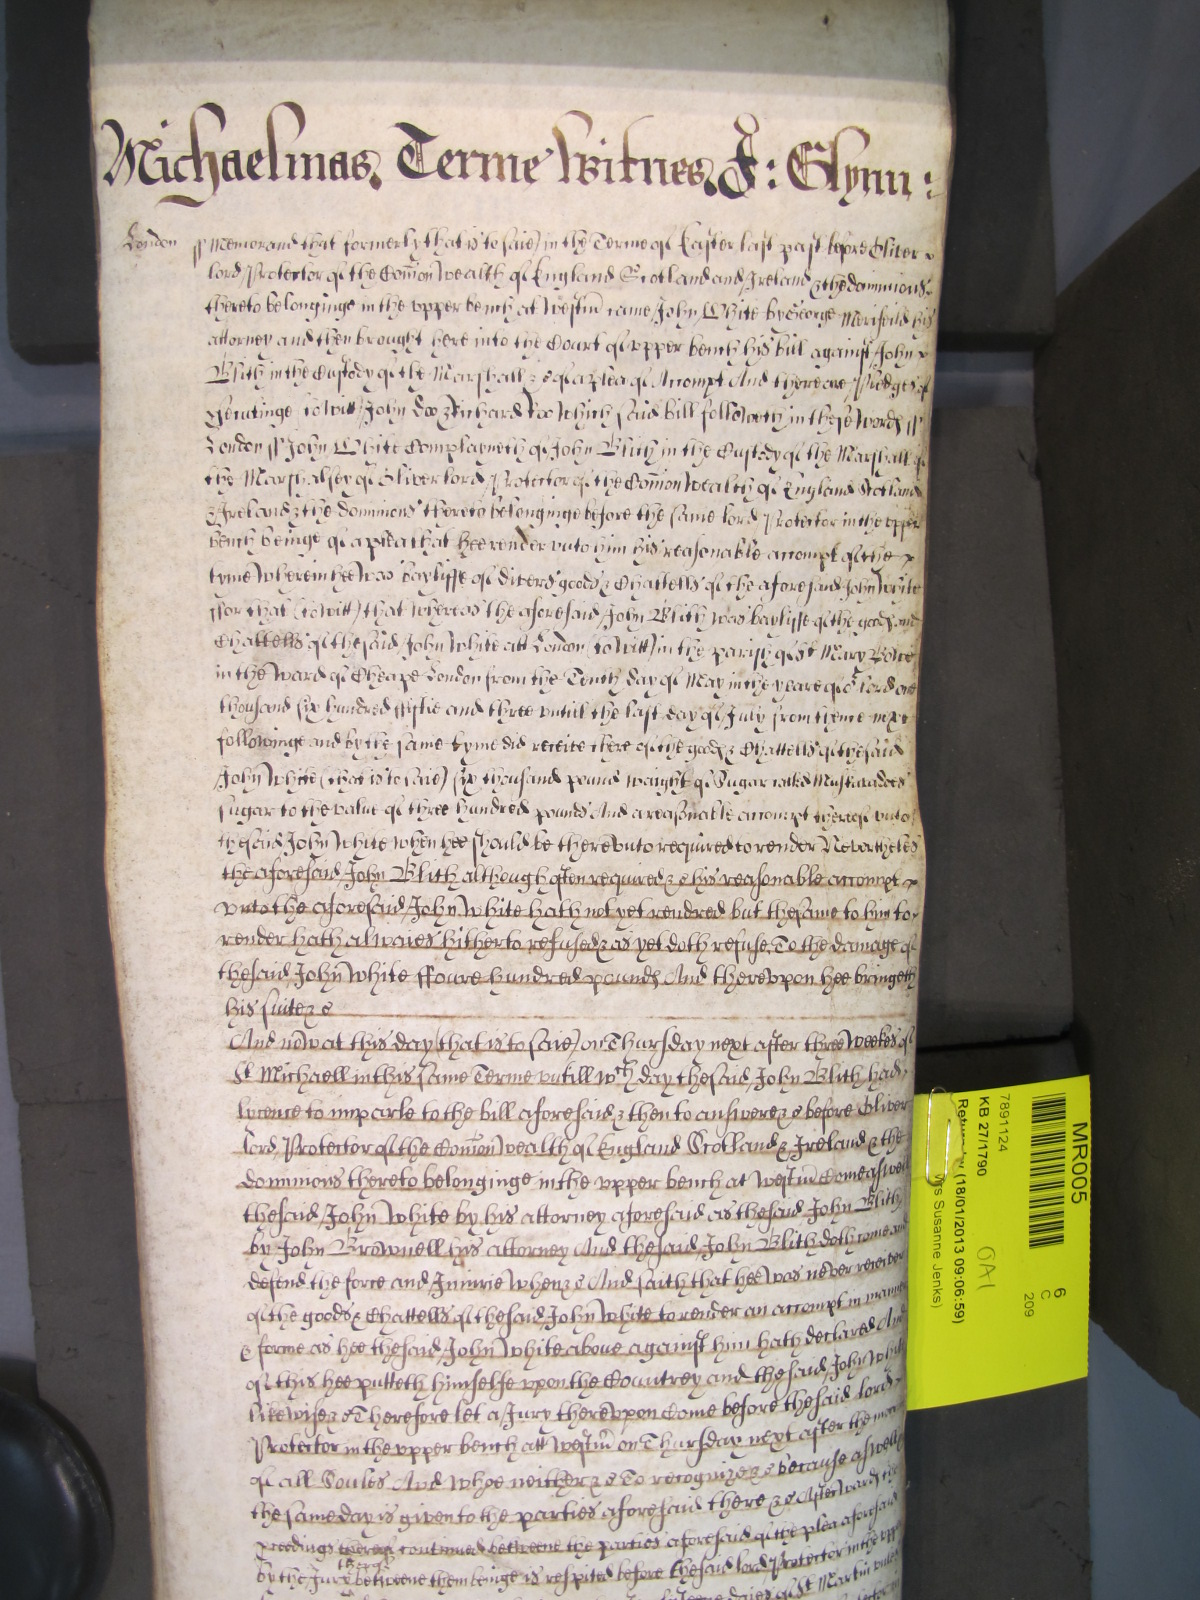 Michaelmas Terme Witnes J: Glynn:
London ss Memorand that formerly that is to saie in the Terme of Easter last past before Oliver
lord Protector of the Com̄on wealth of England Scotland and Ireland & the dominions
thereto belonginge in the vpper bench at Westm̄ came John White by George Merifeild his
attorney and then brought here into the Court of vpper bench his bill against John
Blith in the Custody of the Marshall &c of a plea of Accompt And there are Pledges of
prosecutinge to witt John Doo & Richard Roo Which said bill followeth in these words ss
London ss John White Complayneth of John Blith in the Custody of the Marshall of
the Marshalsey of Oliver lord Protector of the Com̄on wealth of England Scotland
& Ireland & the dominions thereto belonginge before the same lord Protector in the vpper
bench beinge of a plea that hee render vnto him his reasonable accompt of the
tyme wherein hee was bayliffe of divers goods & Chattells of the aforesaid John White
ffor that (to witt) that whereas the aforesaid John Blith was bayliffe of the goods and
Chattells of the said John White att London (to witt) in the parish of St Mary Bowe
in the Ward of Cheape London from the Tenth day of May in the yeare of or lord one
thousand six hundred fiftie and three vntill the last day of July from thence next
followinge and by the same tyme did receive there of the goods & Chattells of the said
John White (that is to saie) six thousand pound waight of Sugar called Muskavadoes
sugar to the value of three hundred pounds And a reasonable accompt thereof vnto
the said John White when hee should be therevnto required to render Neverthelesse
the aforesaid John Blith although often required &c his reasonable accompt
vnto the aforesaid John White hath not yet rendred but the same to him to
render hath alwaies hitherto refused & as yet doth refuse To the damage of
the said John White ffoure hundred pounds And therevpon hee bringeth
his suite &c
And now at this day (that is to saie) on Thursday next after three weekes of
St Michaell in this same Terme vntill wch day the said John Blith had
lycence to imparle to the bill aforesaid & then to answere &c before Oliver
lord Protector of the Com̄on wealth of England Scotland & Ireland & the
dominions thereto belonginge in the vpper bench at Westm̄ Come aswell
the said John White by his attorney aforesaid as the said John Blith
by John Brownell his attorney And the said John Blith doth come and
defend the force and Iniurie when &c And saith that hee was never receiver
of the goods & Chattells of the said John White to render an accompt in manner
& forme as hee the said John White above against him hath declared And
of this hee putteth himselfe vpon the Countrey and the said John White
likewise &c Therefore let a Jury therevpon Come before the said lord
Protector in the vpper bench att Westm̄ on Thursday next after the morrow
of all Soules And whoe neither &c To recognize &c because aswell
the same day is given to the parties aforesaid there &c Afterwards the
proceedings continued betweene the parties aforesaid of the plea aforesaid
by the Jury betweene them beinge is respited before the said lord Protector in the vpper
dayes of St Martin
MR005
6
C
209
7891124
KB 27/1790
OA1
(18/01/2013 09:06:59)
Susanne Jenks)